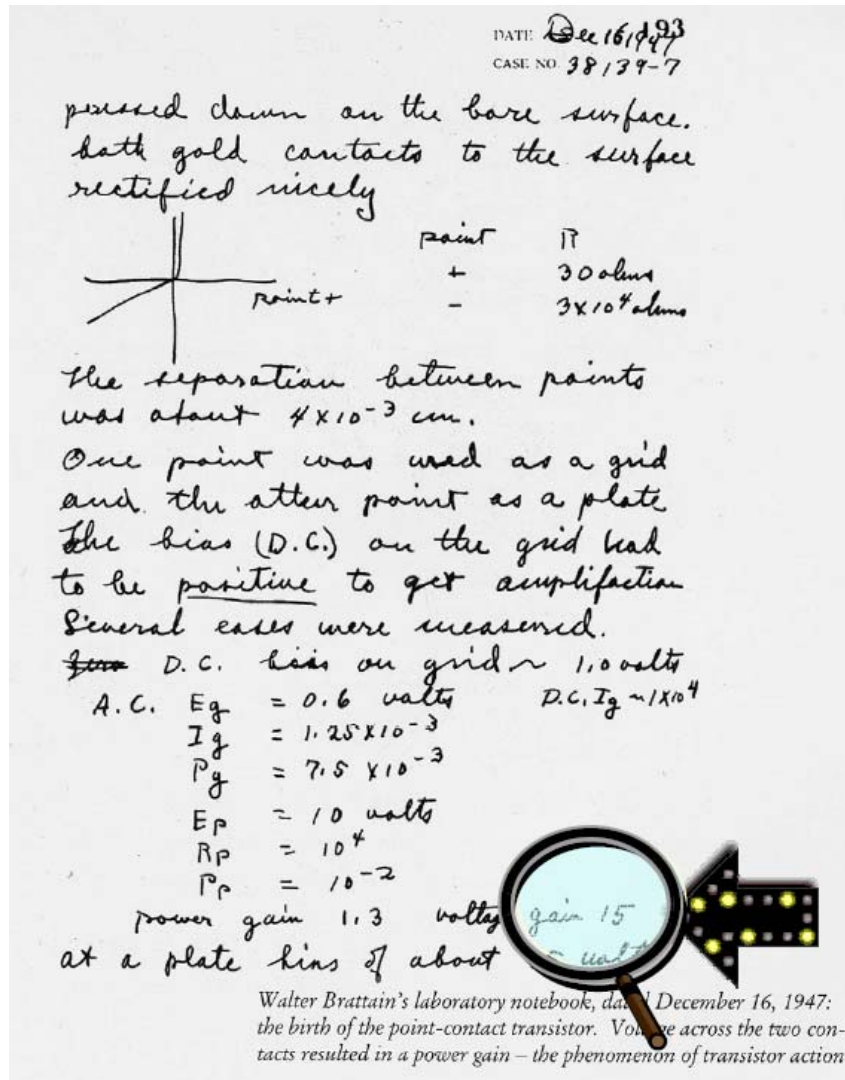 DATE Dec 16, 1947 193
CASE NO. 38139-7
pressed down on the bare surface.
both gold contacts to the surface
rectified nicely
point R
+ 30 ohms
point +
- 3x10⁴ ohms
The separation between points
was about 4x10⁻³ cm.
One point was used as a grid
and the other point as a plate
The bias (D.C.) on the grid had
to be positive to get amplifaction
Several cases were measured.
D.C. bias on grid ~ 1.0 volts
A.C. Eg = 0.6 volts D.C. Ig ~ 1x10⁴
Ig = 1.25x10⁻³
Pg = 7.5 x10⁻³
Ep = 10 volts
Rp = 10⁴
Pp = 10⁻²
power gain 1.3 voltag gain 15
at a plate bias of about
Walter Brattain's laboratory notebook, dated December 16, 1947:
the birth of the point-contact transistor. Voltage across the two con-
tacts resulted in a power gain – the phenomenon of transistor action